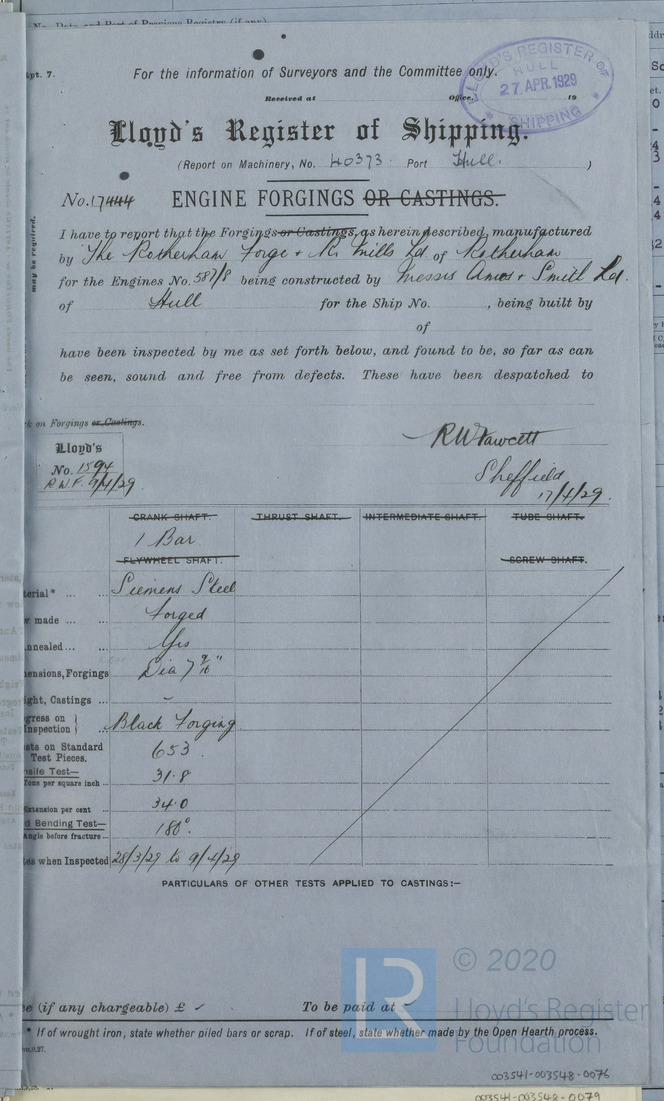 No. Date and Part of Previous Registry (if any)
pt. 7.
For the information of Surveyors and the Committee only.
Received at Office, 19
LLOYD'S REGISTER OF SHIPPING
HULL
27 APR. 1929
Lloyd's Register of Shipping.
(Report on Machinery, No. 40373. Port Hull. )
No. 17444 ENGINE FORGINGS OR CASTINGS.
I have to report that the Forgings or Castings, as herein described, manufactured
by The Rotherham Forge + R. Mills Ld of Rotherham
for the Engines No. 587/8 being constructed by Messrs Amos + Smith Ld.
of Hull for the Ship No. , being built by
of
have been inspected by me as set forth below, and found to be, so far as can
be seen, sound and free from defects. These have been despatched to
may be required.
k on Forgings or Castings.
Lloyd's
No. 1594
R.W.F. 9/4/29.
RW Fawcett
Sheffield
17/4/29.
CRANK SHAFT. THRUST SHAFT. INTERMEDIATE SHAFT. TUBE SHAFT.
1 Bar
FLYWHEEL SHAFT. SCREW SHAFT.
terial* ... ... Siemens Steel
w made ... ... Forged
nnealed ... ... Yes
ensions, Forgings Dia 7 9/16"
ght, Castings ... –
gress on Inspection Black Forging
sts on Standard Test Pieces. 653
nsile Test—
Tons per square inch ... 31.8
Extension per cent ... 34.0
d Bending Test—
Angle before fracture ... 180°.
tes when Inspected 28/3/29 to 9/4/29
PARTICULARS OF OTHER TESTS APPLIED TO CASTINGS:—
e (if any chargeable) £ To be paid at
* If of wrought iron, state whether piled bars or scrap. If of steel, state whether made by the Open Hearth process.
LR
© 2020
Lloyd's Register
Foundation
003541-003548-0076
003541-003548-0079